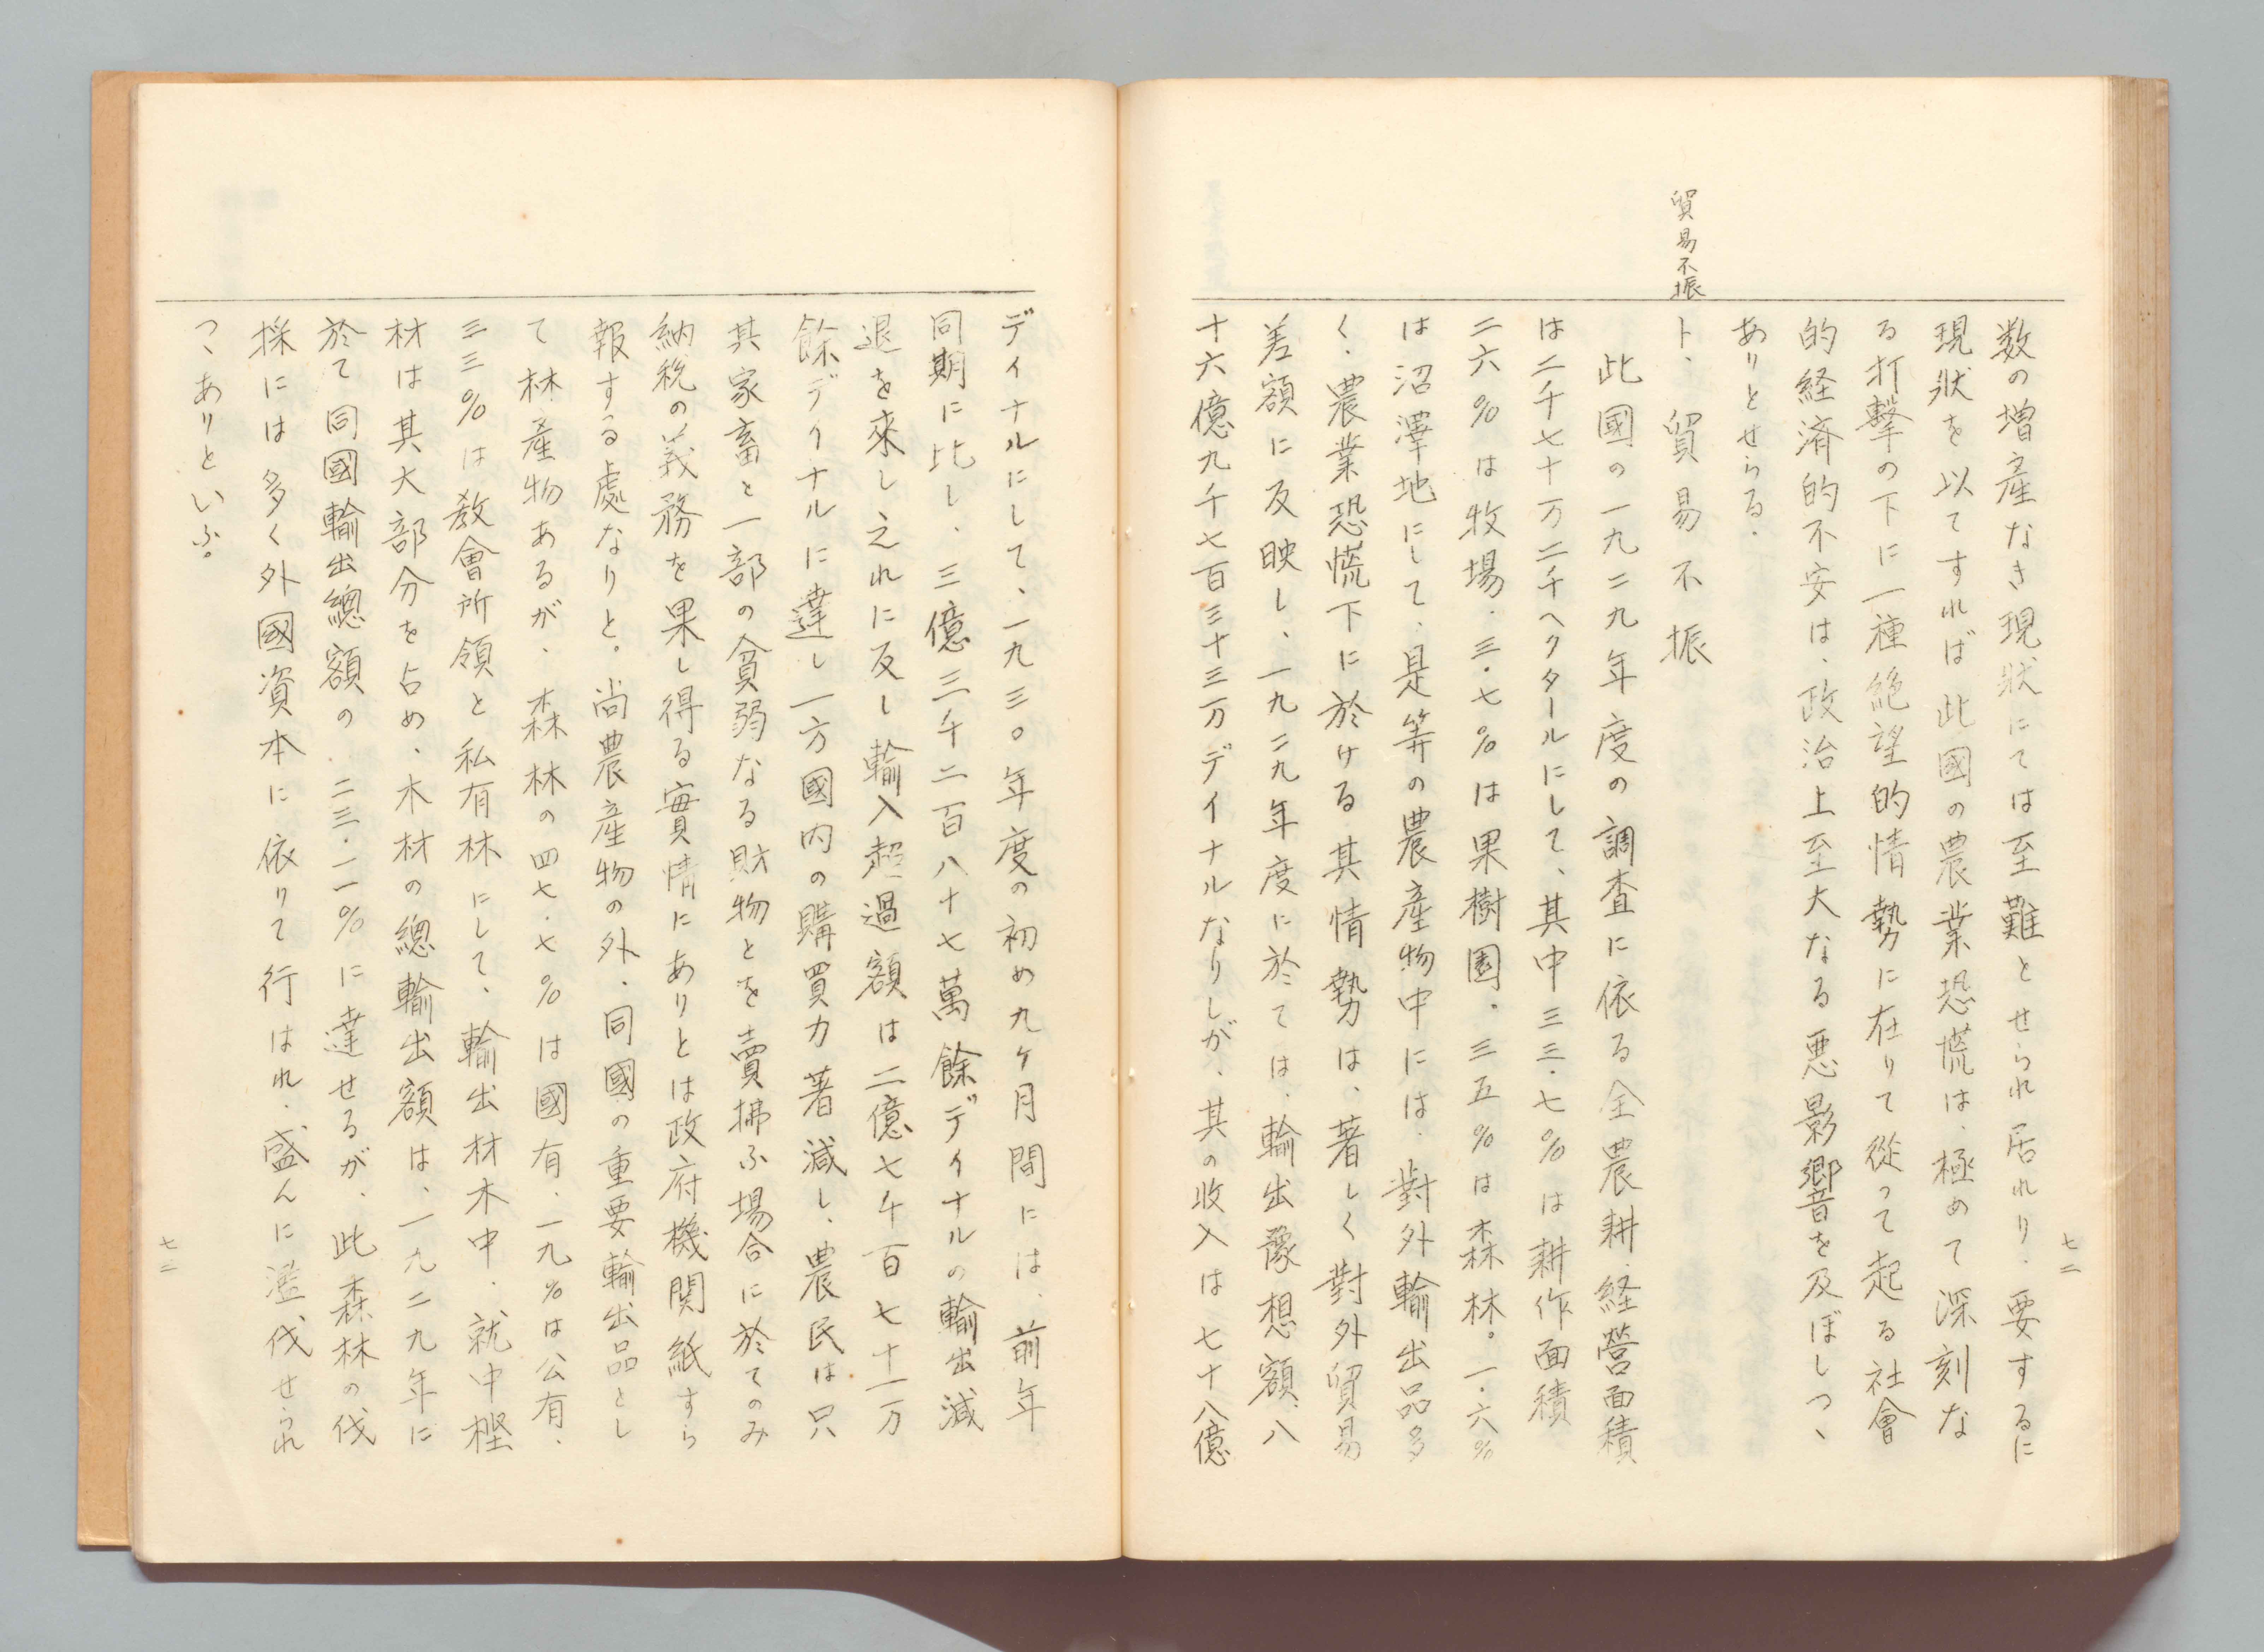 七二
数の増産なき現狀にては至難とせられ居れり．要するに
現狀を以てすれば此國の農業恐慌は、極めて深刻な
る打撃の下に一種絶望的情勢に在りて從って起る社會
的経済的不安は、政治上至大なる悪影響を及ぼしつヽ
ありとせらる．
貿易不振
ト、貿易不振
此國の一九二九年度の調査に依る全農耕経營面積
は二千七十万二千ヘクタールにして、其中三三・七％は耕作面積
二六％は牧場．三・七％は果樹園．三五％は森林。一・六％
は沼澤地にして、是等の農産物中には．對外輸出品多
く．農業恐慌下に於ける其情勢は、著しく對外貿易
差額に反映し、一九二九年度に於ては、輸出豫想額、八
十六億九千七百三十三万デイナルなりしが、其の收入は七十八億
デイナルにして、一九三〇年度の初め九ケ月間には、前年
同期に比し、三億三千二百八十七萬餘デイナルの輸出減
退を來し之れに反し輸入超過額は二億七千百七十一万
餘デイナルに達し一方國内の購買力著減し、農民は只
其家畜と一部の貧弱なる財物とを賣拂ふ場合に於てのみ
納税の義務を果し得る實情にありとは政府機関紙すら
報する處なりと。尚農産物の外．同國の重要輸出品とし
て林産物あるが、森林の四七・七％は國有．一九％は公有．
三三％は教會所領と私有林にして、輸出材木中．就中樫
材は其大部分を占め、木材の總輸出額は、一九二九年に
於て同國輸出總額の二三・一一％に達せるが、此森林の伐
採には多く外國資本に依りて行はれ．盛んに濫伐せられ
つヽありといふ。
七二